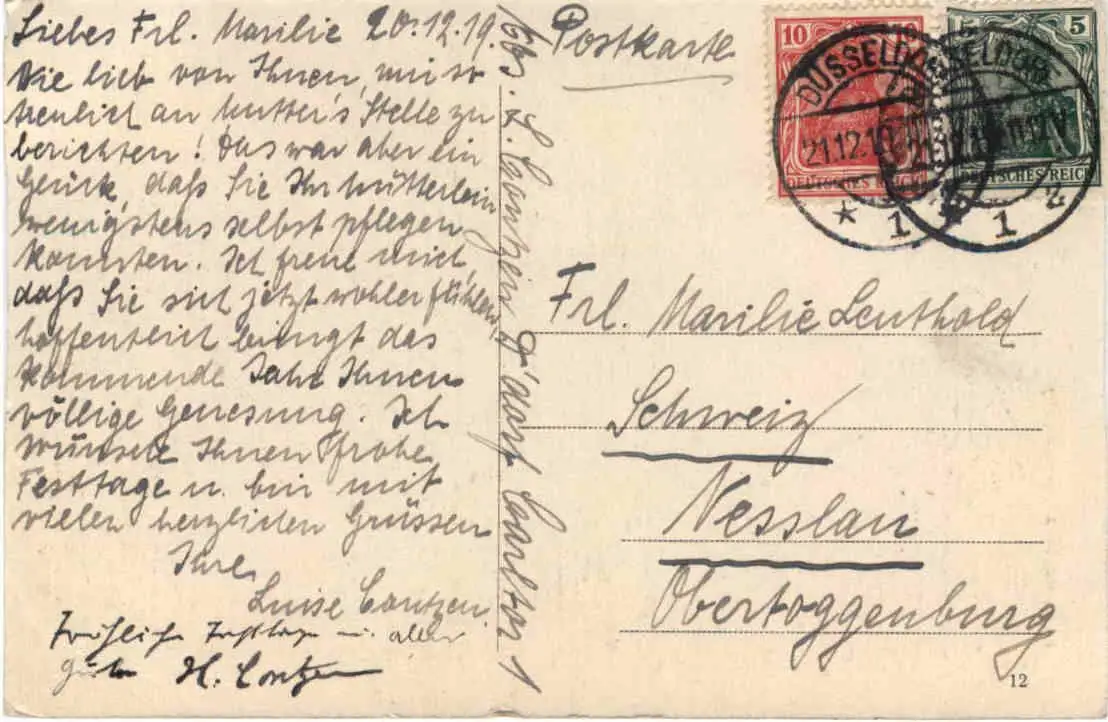 Liebes Frl. Marilie 20.12.19.
Wie lieb von Ihnen, mir so
treulich an Mutter's Stelle zu
berichten! Das war aber ein
Glück, daß Sie Ihr Mütterlein
wenigstens selbst pflegen
konnten. Ich freue mich,
daß Sie sich jetzt wohler fühlen,
hoffentlich bringt das
kommende Jahr Ihnen
völlige Genesung. Ich
wünsche Ihnen frohe
Festtage u. bin mit
vielen herzlichen Grüssen
Ihre
Luise Contzen.
Fröhliche Festtage u. alles
gute H. Contzen
Abs. L. Contzen D'dorf
1
Postkarte
10
DEUTSCHES REICH
5
DEUTSCHES REICH
DÜSSELDORF
21.12.19
* 1
DÜSSELDORF
21.12.19 11-12V
* 1 z
Frl. Marilie Leuthold
Schweiz
Nesslau
Obertoggenburg
12